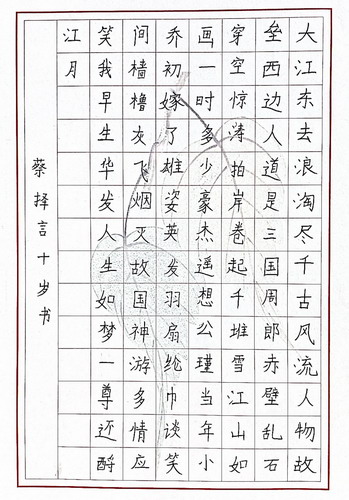 大江东去浪淘尽千古风流人物故
垒西边人道是三国周郎赤壁乱石
穿空惊涛拍岸卷起千堆雪江山如
画一时多少豪杰遥想公瑾当年小
乔初嫁了雄姿英发羽扇纶巾谈笑
间樯橹灰飞烟灭故国神游多情应
笑我早生华发人生如梦一尊还酹
江月
蔡择言十岁书